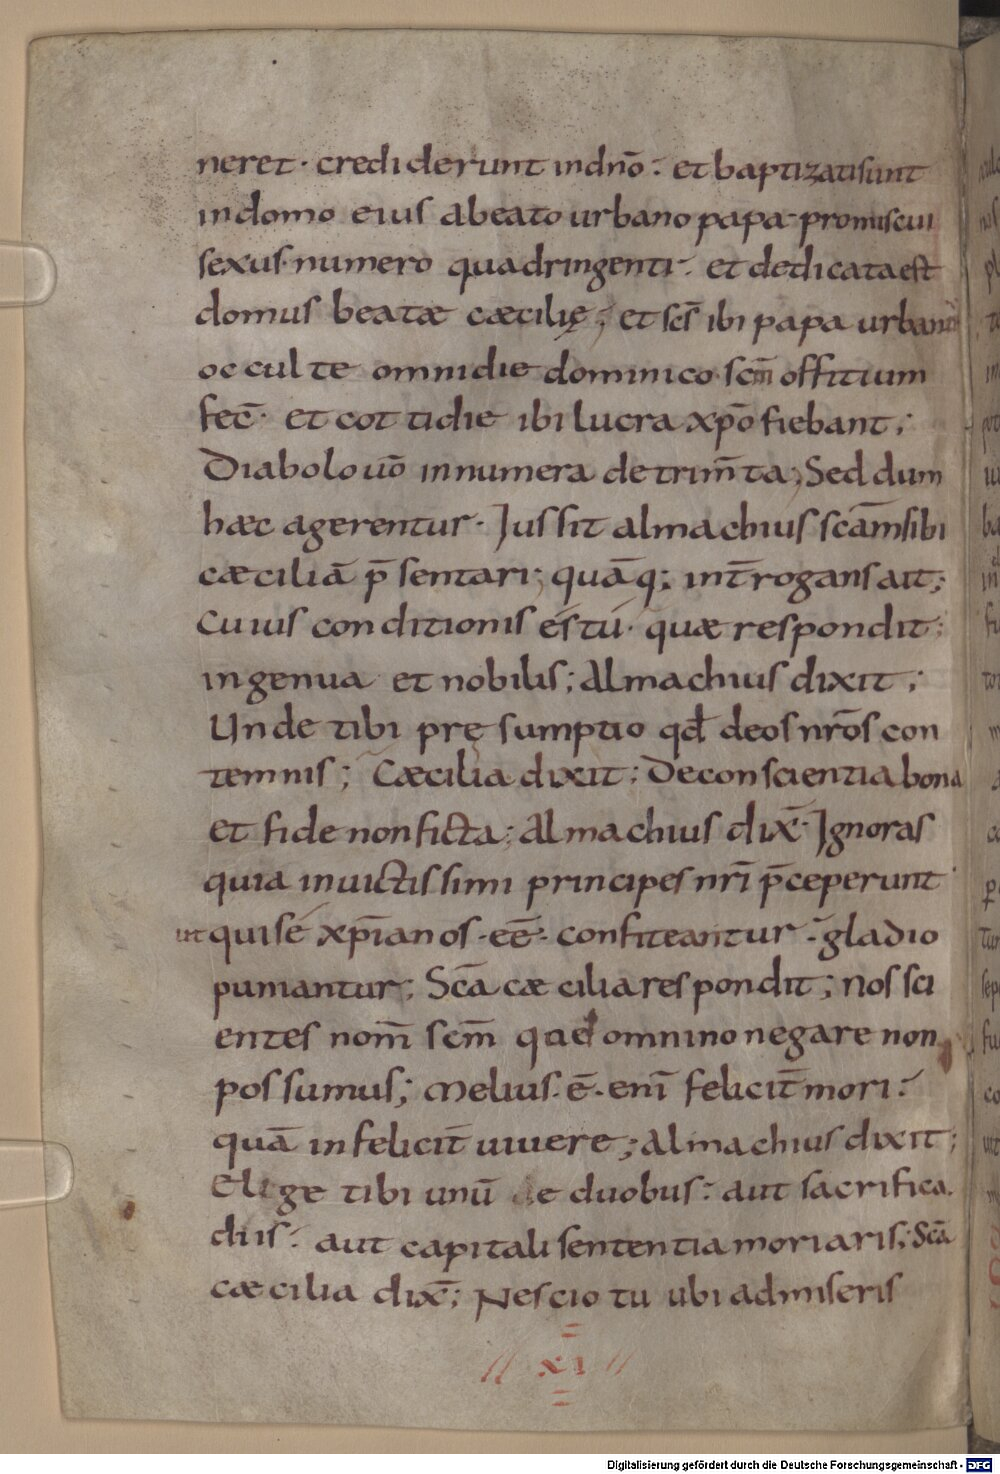 neret · crediderunt in dnō : et baptizati sunt
in domo eius a beato urbano papa · promiscui
sexus · numero quadringenti : et dedicata est
domus beatæ cæcilię ; et scs̄ ibi papa urbanus
occulte omni die dominico · scm̄ offitium
fec̄ · et cottidie ibi lucra xpō fiebant ;
Diabolo uō innumera detrim̄ta ; Sed dum
hæc agerentur · Jussit almachius scām sibi
cæciliā p̄sentari ; quāq; int̄rogans ait ;
Cuius conditionis és tú · quæ respondit ;
ingenua et nobilis ; Almachius dixit ;
Unde tibi pręsumptio qđ deos nrōs con
temnis ; Cæcilia dixit ; De conscientia bona
et fide non ficta ; Almachius dix̄ · Ignoras
quia inuictissimi principes nrī p̄ceperunt
ut qui sé xpīanos · eē · confiteantur · gladio
puniantur ; Scā cæcilia respondit ; Nos sci
entes nom̄ scm̄ quod omnino negare non
possumus ; Melius · ē · enī felicit̄ mori :
quā infelicit̄ uiuere ; Almachius dixit ;
Elige tibi unū de duobus : aut sacrifica
diis : aut capitali sententia moriaris ; Scā
cæcilia dix̄ ; Nescio tu ubi admiseris
XI
Digitalisierung gefördert durch die Deutsche Forschungsgemeinschaft - DFG